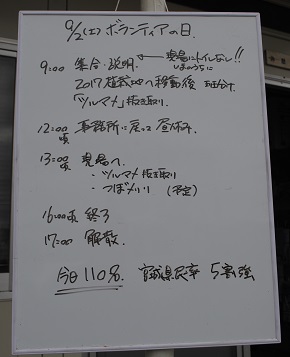 9/2(土) ボランティアの日.
9:00 集合・説明. ← 現場にトイレなし!!
いまのうちに
2017植栽地へ移動後 班分け.
「ツルマメ」抜き取り.
12:00頃 事務所に戻って 昼休み.
13:00頃 現場へ.
・ツルマメ抜き取り
・つぼメリリ (予定)
16:00頃 終了
17:00 解散.
今日110名. 宮城県民率 5割強